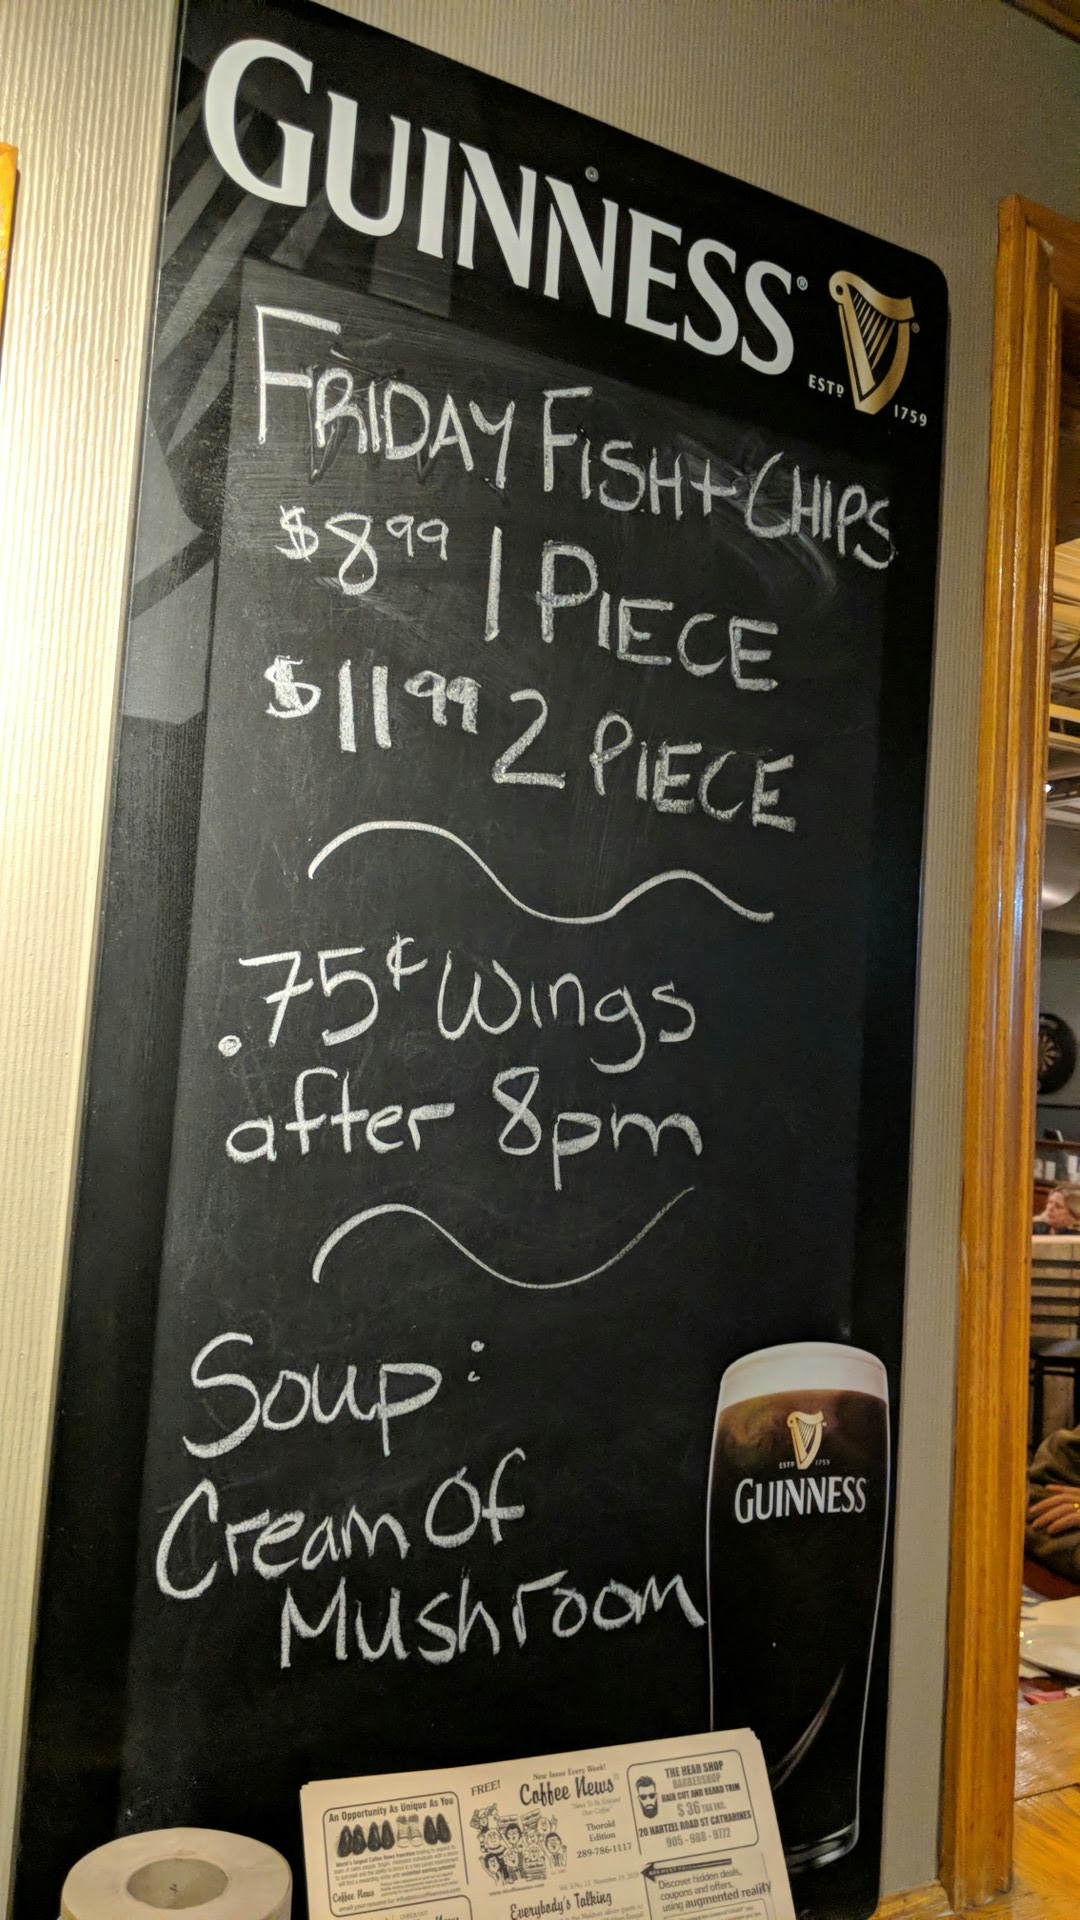 GUINNESS®
ESTD 1759
FRIDAY FISH + CHIPS
$8.99 1 PIECE
$11.99 2 PIECE
.75¢ Wings
after 8pm
Soup:
Cream Of
Mushroom
ESTD 1759
GUINNESS
An Opportunity As Unique As You
Coffee News
FREE!
New Issue Every Week!
Coffee News
Thorold
Edition
289-786-1117
Everybody's Talking
THE HEAD SHOP
BARBERSHOP
HAIR CUT AND BEARD TRIM
$36 TAX INC.
20 HARTZEL ROAD ST CATHARINES
905-988-9772
Discover hidden deals,
coupons and offers,
using augmented reality